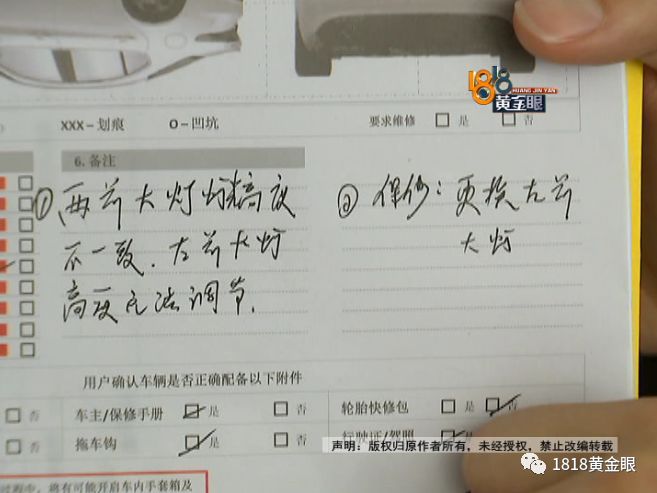 1818
HUANG JIN YAN
黄金眼
XXX-划痕 O-凹坑 要求维修 是 否
6. 备注
① 两前大灯灯光高度 ② 保修：更换左前
不一致．左前大灯 大灯
高度无法调节．
用户确认车辆是否正确配备以下附件
否 车主/保修手册 是 否 轮胎快修包 是 否
否 拖车钩 是 否 行驶证/驾照
声明：版权归原作者所有，未经授权，禁止改编转载
将有可能开启车内手套箱及
1818黄金眼